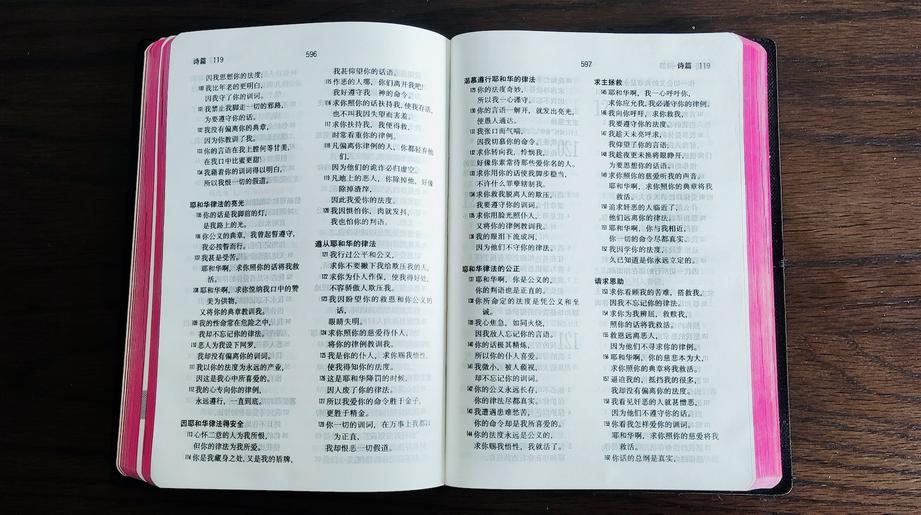 诗篇 119
596
因我思想你的法度;
100 我比年老的更明白,
因我守了你的训词。
101 我禁止我脚走一切的邪路,
为要遵守你的话。
102 我没有偏离你的典章,
因为你教训了我。
103 你的言语在我上膛何等甘美,
在我口中比蜜更甜!
104 我藉着你的训词得以明白,
所以我恨一切的假道。
耶和华律法的亮光
105 你的话是我脚前的灯,
是我路上的光。
106 你公义的典章,我曾起誓遵守,
我必按誓而行。
107 我甚是受苦。
耶和华啊,求你照你的话将我救
活。
108 耶和华啊,求你悦纳我口中的赞
美为供物,
又将你的典章教训我。
109 我的性命常在危险之中,
我却不忘记你的律法。
110 恶人为我设下网罗,
我却没有偏离你的训词。
111 我以你的法度为永远的产业,
因这是我心中所喜爱的。
112 我的心专向你的律例,
永远遵行,一直到底。
因耶和华律法得安全
113 心怀二意的人为我所恨,
但你的律法为我所爱。
114 你是我藏身之处,又是我的盾牌,
我甚仰望你的话语。
115 作恶的人哪,你们离开我吧!
我好遵守我 神的命令。
116 求你照你的话扶持我,使我存活,
也不叫我因失望而害羞。
117 求你扶持我,我便得救,
时常看重你的律例。
118 凡偏离你律例的人,你都轻弃他
们,
因为他们的诡诈必归虚空。
119 凡地上的恶人,你除掉他,好像
除掉渣滓,
因此我爱你的法度。
120 我因惧怕你,肉就发抖,
我也怕你的判语。
遵从耶和华的律法
121 我行过公平和公义,
求你不要撇下我给欺压我的人。
122 求你为仆人作保,使我得好处,
不容骄傲人欺压我。
123 我因盼望你的救恩和你公义的
话,
眼睛失明。
124 求你照你的慈爱待仆人,
将你的律例教训我。
125 我是你的仆人,求你赐我悟性,
使我得知你的法度。
126 这是耶和华降罚的时候,
因人废了你的律法。
127 所以我爱你的命令胜于金子,
更胜于精金。
128 你一切的训词,在万事上我都以
为正直,
我却恨恶一切假道。
597
诗篇 119
渴慕遵行耶和华的律法
129 你的法度奇妙,
所以我一心谨守。
130 你的言语一解开,就发出亮光,
使愚人通达。
131 我张口而气喘,
因我切慕你的命令。
132 求你转向我,怜悯我,
好像你素常待那些爱你名的人。
133 求你用你的话使我脚步稳当,
不许什么罪孽辖制我。
134 求你救我脱离人的欺压,
我要遵守你的训词。
135 求你用脸光照仆人,
又将你的律例教训我。
136 我的眼泪下流成河,
因为他们不守你的律法。
耶和华律法的公正
137 耶和华啊,你是公义的,
你的判语也是正直的。
138 你所命定的法度是凭公义和至
诚。
139 我心焦急,如同火烧,
因我敌人忘记你的言语。
140 你的话极其精炼,
所以你的仆人喜爱。
141 我微小,被人藐视,
却不忘记你的训词。
142 你的公义永远长存,
你的律法尽都真实。
143 我遭遇患难愁苦,
你的命令却是我所喜爱的。
144 你的法度永远是公义的,
求你赐我悟性,我就活了。
求主拯救
145 耶和华啊,我一心呼吁你,
求你应允我,我必谨守你的律例。
146 我向你呼吁,求你救我,
我要遵守你的法度。
147 我趁天未亮呼求,
我仰望了你的言语。
148 我趁夜更未换将眼睁开,
为要思想你的话语。
149 求你照你的慈爱听我的声音。
耶和华啊,求你照你的典章将我
救活。
150 追求奸恶的人临近了,
他们远离你的律法。
151 耶和华啊,你与我相近,
你一切的命令尽都真实。
152 我因学你的法度,
久已知道是你永远立定的。
请求恩助
153 求你看顾我的苦难,搭救我,
因我不忘记你的律法。
154 求你为我辨屈,救赎我,
照你的话将我救活。
155 救恩远离恶人,
因为他们不寻求你的律例。
156 耶和华啊,你的慈悲本为大,
求你照你的典章将我救活。
157 逼迫我的,抵挡我的很多,
我却没有偏离你的法度。
158 我看见奸恶的人就甚憎恶,
因为他们不遵守你的话。
159 你看我怎样爱你的训词,
耶和华啊,求你照你的慈爱将我
救活。
160 你话的总纲是真实,